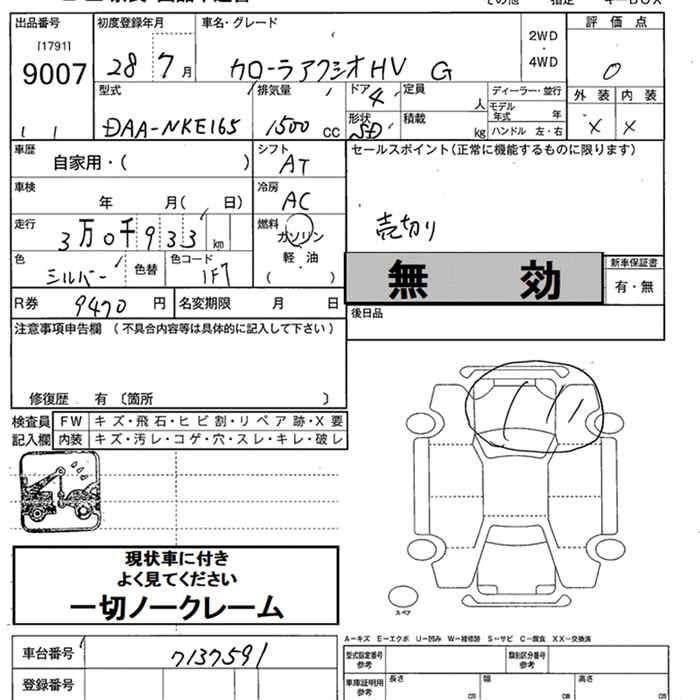 出品番号 初度登録年月 車名・グレード 評価点
[1791]
9007 28 7月 カローラアクシオHV G 2WD・4WD 0
型式 排気量 ドア 4 定員 人 ディーラー・並行 外装 内装
DAA-NKE165 1500 CC 形状 SD 積載 kg モデル年式 年 × ×
ハンドル 左・右
1 1
車歴 シフト セールスポイント(正常に機能するものに限ります)
自家用・( ) AT
車検 冷房
年 月( 日) AC
走行 燃料 売切り
3万0千933km ガソリン
色 色コード 軽油
シルバー 色替 1F7 ( )
無効 新車保証書
有・無
R券 9470円 名変期限 月 日 後日品
注意事項申告欄 (不具合内容等は具体的に記入して下さい)
修復歴 有〔箇所 〕
検査員 FW キズ・飛石・ヒビ割・リペア跡・X要
記入欄 内装 キズ・汚レ・コゲ・穴・スレ・キレ・破レ
現状車に付き
よく見てください
一切ノークレーム
スペア
A−キズ E−エクボ U−凹み W−補修跡 S−サビ C−腐食 XX−交換済
車台番号 7137591 型式指定番号 参考 類別区分番号 参考
登録番号 車庫証明用 参考 長さ cm 幅 cm 高さ cm